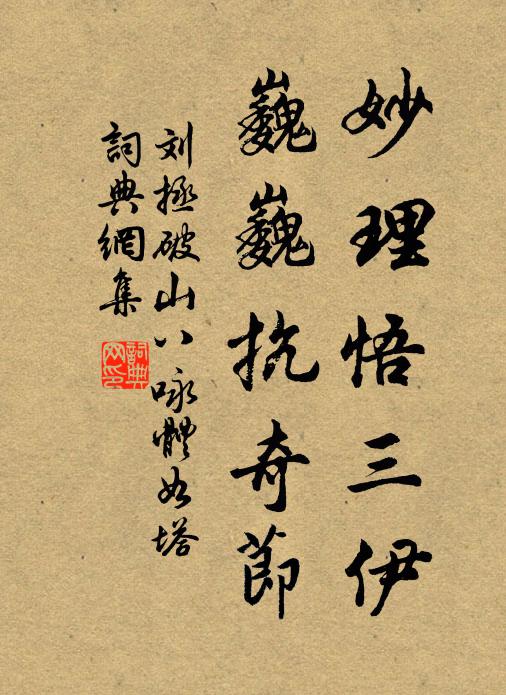 妙理悟三伊
巍巍抗奇節
刘拯破山八咏體如塔
詞典網集
詞典网印